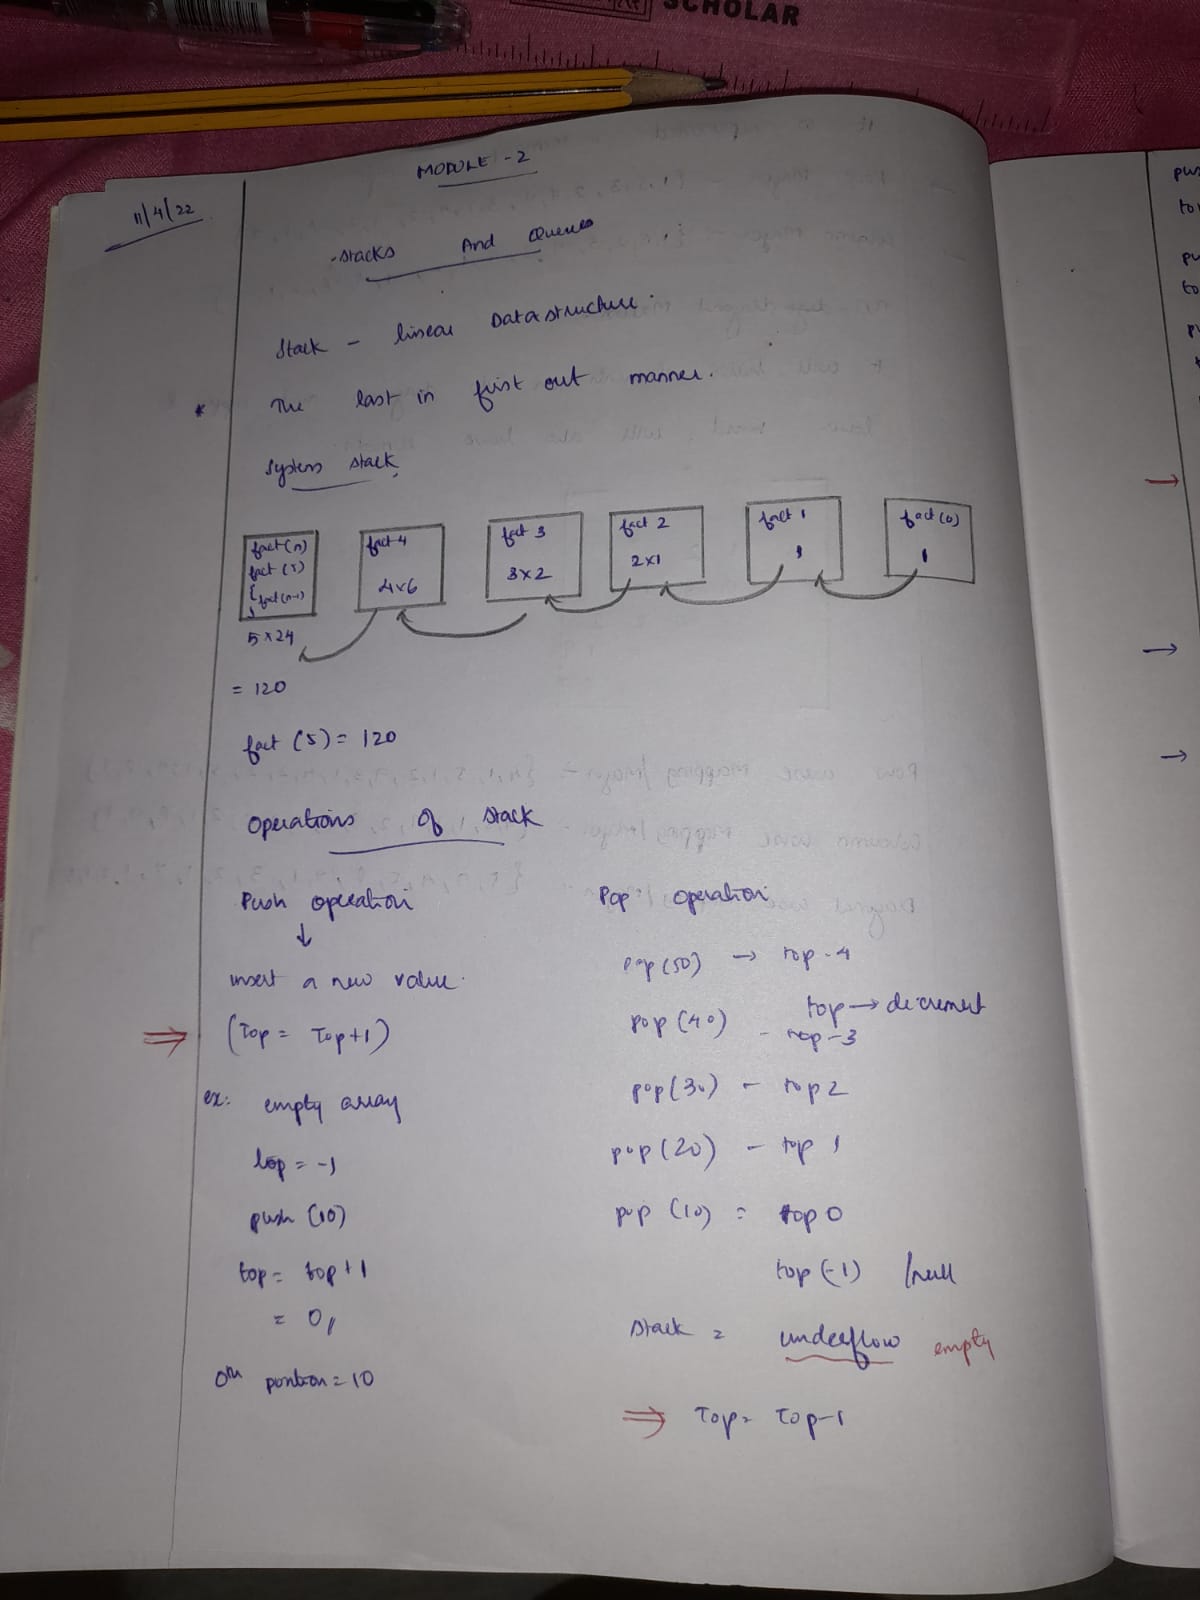 SCHOLAR
MODULE - 2
11/4/22
Stacks And Queues
Stack - linear Datastructure.
* The last in first out manner.
System stack
fact(n)
fact (5)
{ fact(n-1)
}
5 x 24
= 120
fact 4
4x6
fact 3
3x2
fact 2
2x1
fact 1
1
fact(0)
1
fact (5) = 120
Operations of stack
Push operation
↓
insert a new value.
⇒ (Top = Top+1)
ex: empty array
top = -1
push (10)
top = top+1
= 0,
0th position = 10
Pop operation
pop (50) → top - 4
top → decrement
pop (40) - top - 3
pop (30) - top 2
pop (20) - top 1
pop (10) = top 0
top (-1) /null
Stack = underflow empty
⇒ Top = Top-1